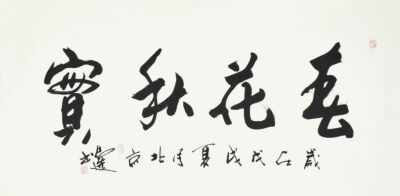 春花秋實
歲在戊戌夏月北京